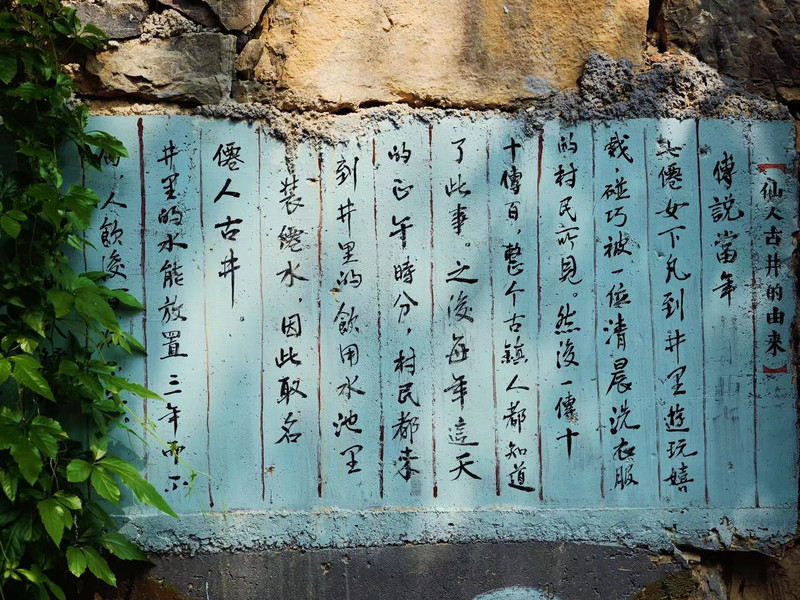 【仙人古井的由来】
傳説當年
七僊女下凡到井里遊玩嬉
戲，碰巧被一位清晨洗衣服
的村民所見。然後一傳十
十傳百，整个古鎮人都知道
了此事。之後每年這天
的正午時分，村民都来
到井里的飲用水池里
裝僊水，因此取名
僊人古井。
井里的水能放置三年而不
人飲後